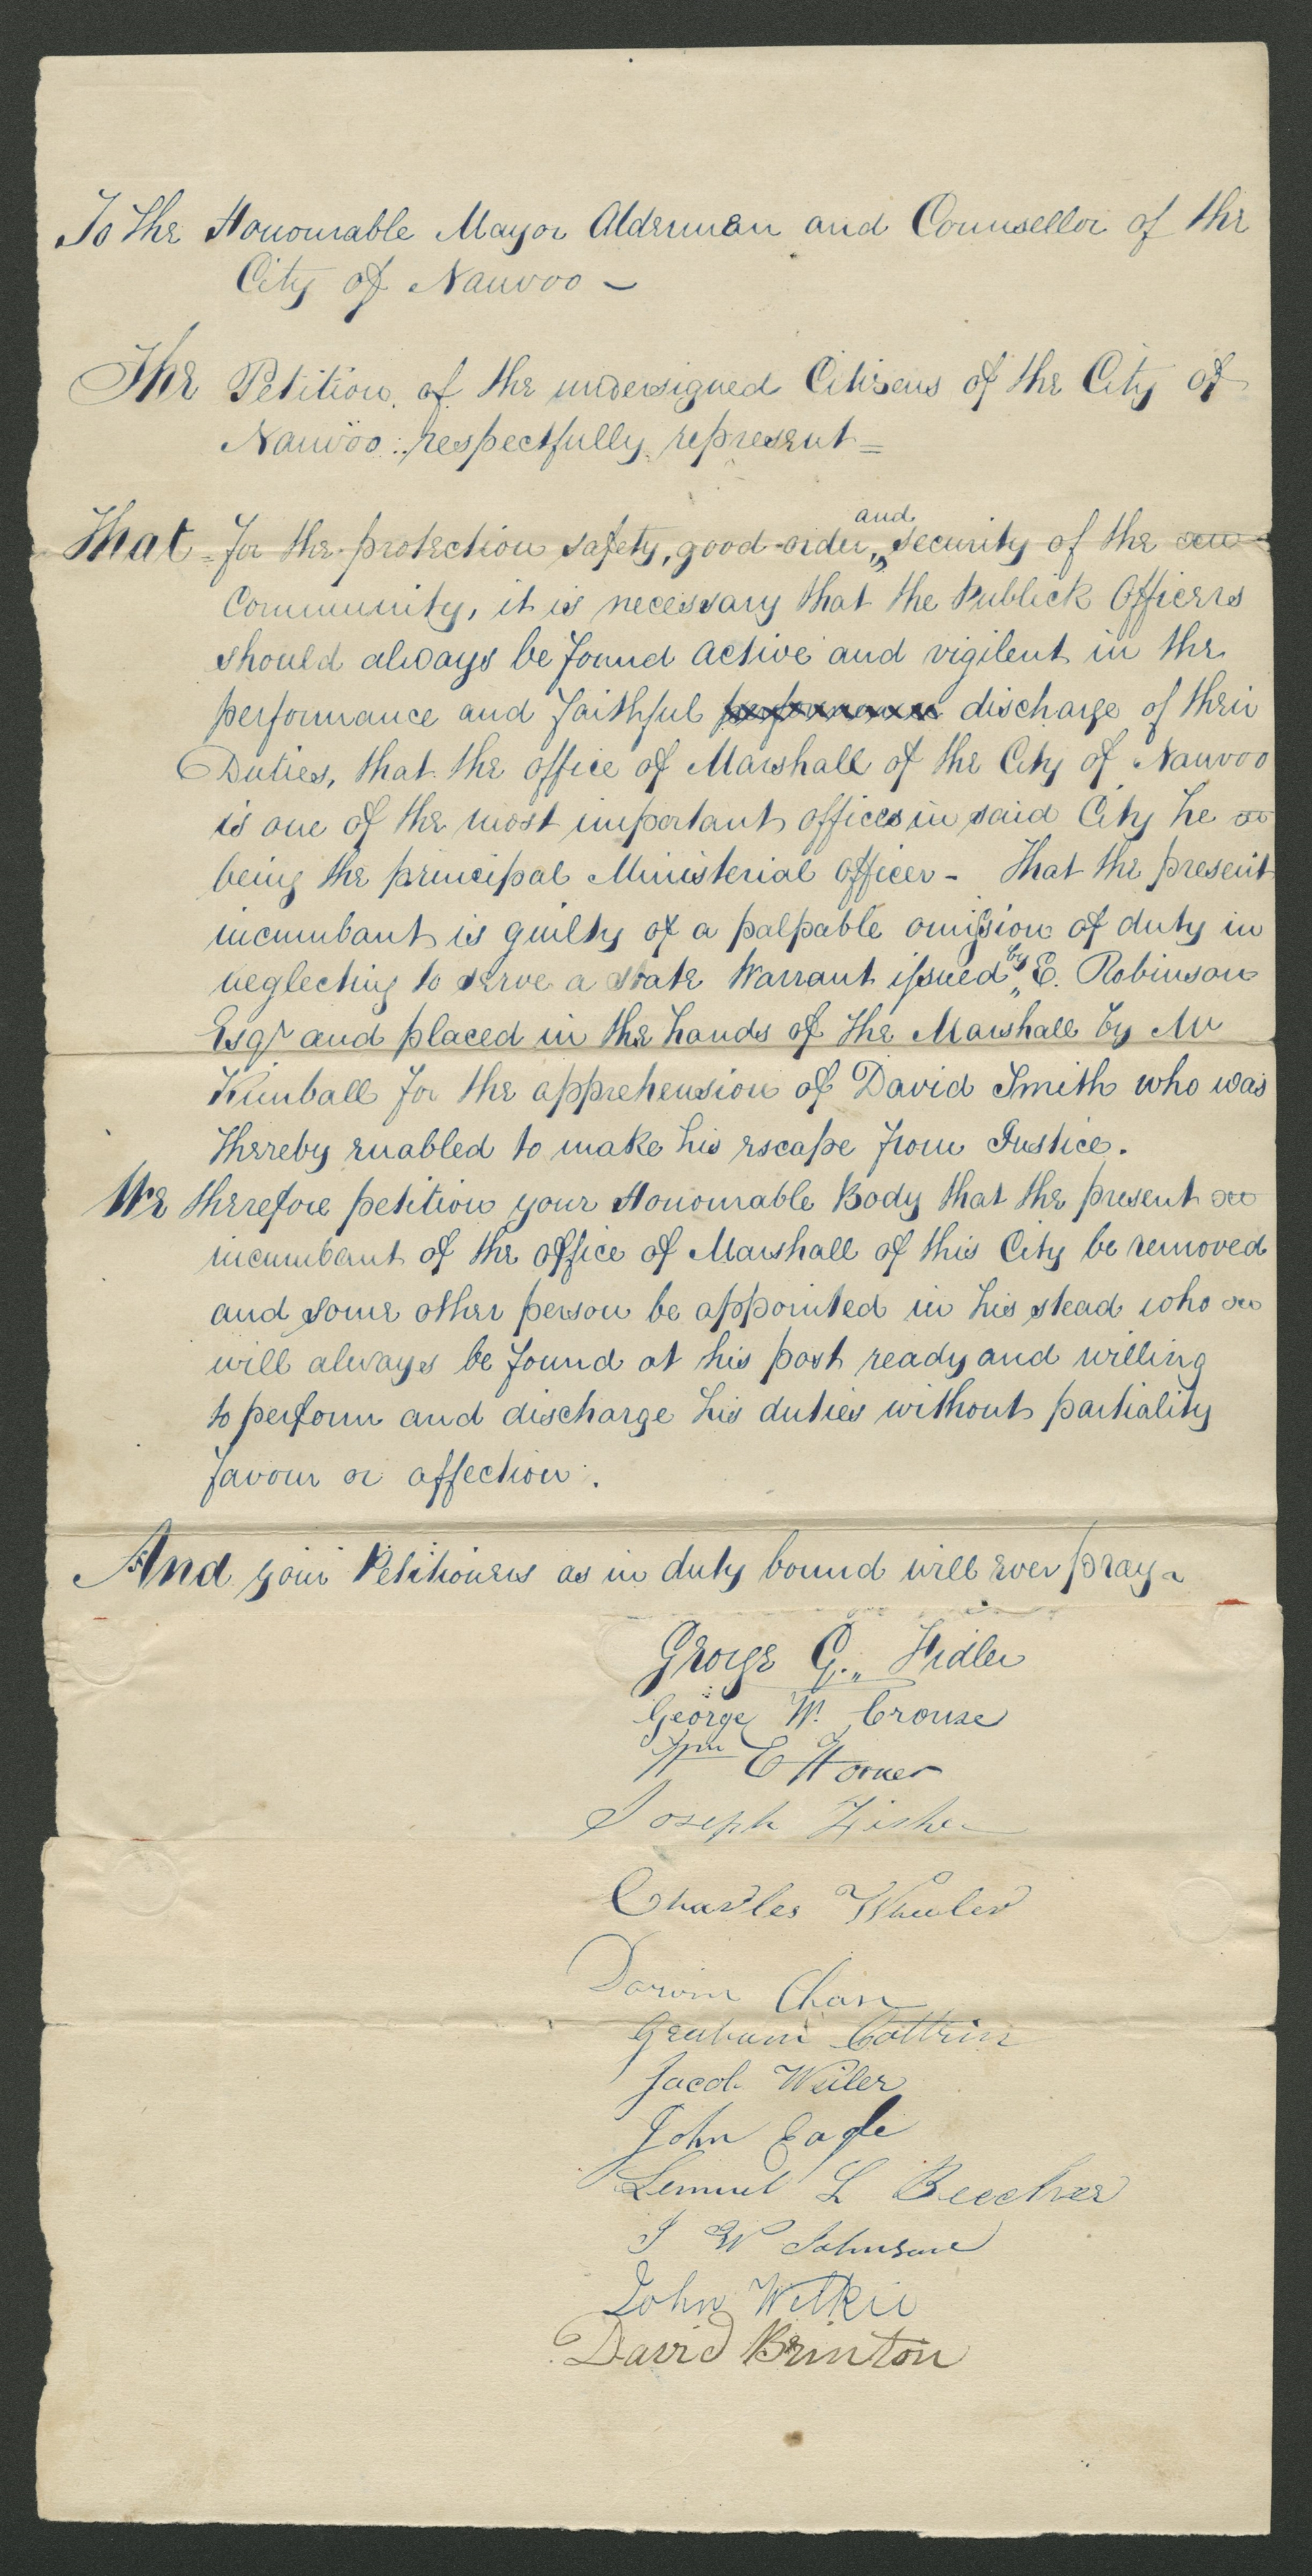 To the Honourable Mayor Aldermen and Counsellor of the
City of Nauvoo –
The Petition of the undersigned Citizens of the City of
Nauvoo respectfully represent =
That for the protection safety, good order, and security of the
Community, it is necessary that the Publick Officers
should always be found active and vigilent in the
performance and faithful performance discharge of their
Duties, that the office of Marshall of the City of Nauvoo
is one of the most important offices in said City he
being the principal Ministerial officer - That the present
incumbant is guilty of a palpable omission of duty in
neglecting to serve a state Warrant issued by E. Robinson
Esqr and placed in the hands of the Marshall by Mr
Kimball for the apprehension of David Smith who was
thereby enabled to make his escape from Justice.
We therefore petition your Honourable Body that the present
incumbant of the office of Marshall of this City be removed
and some other person be appointed in his stead who
will always be found at his post ready and willing
to perform and discharge his duties without partiality
favour or affection.
And your Petitioners as in duty bound will ever pray
George G. Fidler
George W. Crouse
Wm E Horner
Joseph Fisher
Charles Wheeler
Darwin Chase
Graham Coltrin
Jacob Weiler
John Eagle
Lemuel L Beecher
J W Johnson
John Wilkie
David Brinton